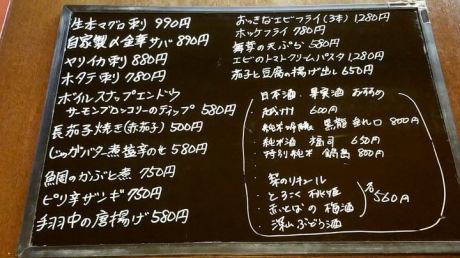 生本マグロ刺り 990円
自家製〆金華サバ 890円
ヤリイカ刺り 880円
ホタテ刺り 780円
ボイルスナップエンドウ
サーモンブロッコリーのディップ 580円
長茄子焼き(赤茄子) 500円
じゃがバター煮塩辛のせ 580円
魚周のかぶと煮 750円
ピリ辛ザンギ 750円
手羽中の唐揚げ 580円
おっきなエビフライ(3本) 1280円
ホッケフライ 780円
舞茸の天ぷら 580円
エビのトマトクリームパスタ 1280円
茄子と豆腐の揚げ出し 650円
日本酒・果実酒 おすすめ
・越州 600円
・純米吟醸 黒龍 垂れ口 800円
・純米酒 福司 650円
・特別純米 鍋島 800円
・杏のリキュール
・とろこく桃姫
・赤いとばの梅酒
・深山ぶどう酒
各560円